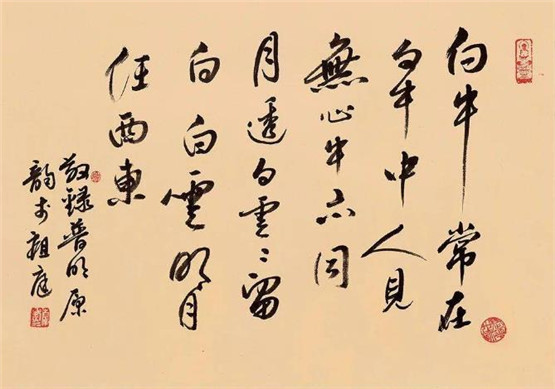 白牛常在
白牛中人見
無心牛亦同
月透白雲〻留
白白雲明月
任西東
敬錄普明原
韵於祖庭